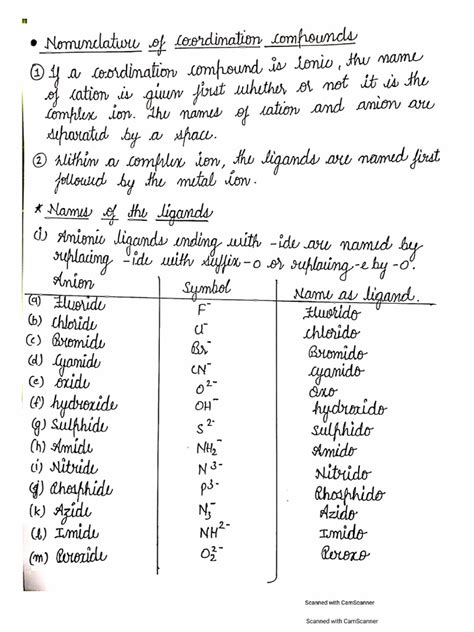 • Nomenclature of coordination compounds
① If a coordination compound is Ionic, the name
of cation is given first whether or not it is the
complex ion. The names of cation and anion are
separated by a space.
② Within a complex ion, the ligands are named first
followed by the metal ion.
* Names of the ligands
i) Anionic ligands ending with -ide are named by
replacing -ide with suffix -o or replacing -e by -o.
Anion Symbol Name as ligand.
(a) Fluoride F⁻ Fluorido
(b) chloride Cl⁻ chlorido
(c) Bromide Br⁻ Bromido
(d) Cyanide CN⁻ cyanido
(e) oxide O²⁻ Oxo
(f) hydroxide OH⁻ hydroxido
(g) Sulphide S²⁻ sulphido
(h) Amide NH₂⁻ Amido
(i) Nitride N³⁻ Nitrido
(j) Phosphide P³⁻ Phosphido
(k) Azide N₃⁻ Azido
(l) Imide NH²⁻ Imido
(m) Peroxide O₂²⁻ Peroxo
Scanned with CamScanner
Scanned with CamScanner